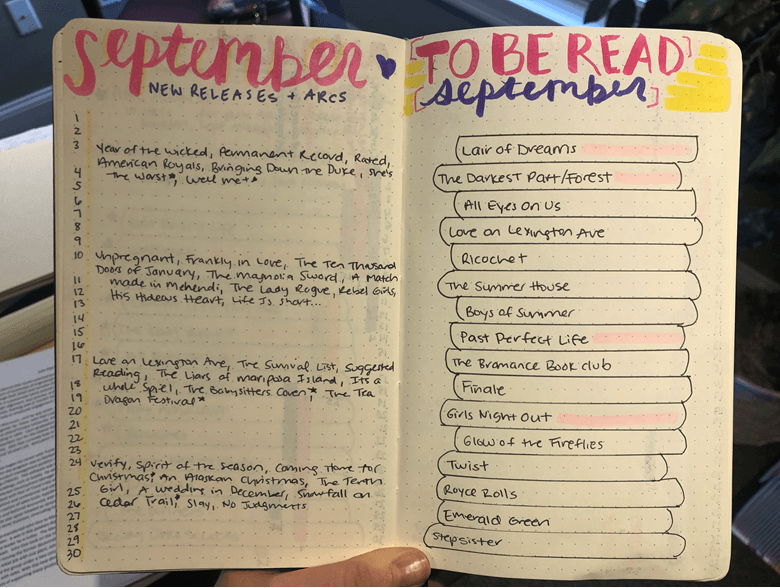 September
NEW RELEASES + ARCS
1
2
3 Year of the Wicked, Permanent Record, Rated,
American Royals, Bringing Down the Duke, She's
4 the Worst*, Well Met*
5
6
7
8
9
10 Unpregnant, Frankly in Love, The Ten Thousand
Doors of January, The Magnolia Sword, A Match
11 made in Mehendi, The Lady Rogue, Rebel Girls,
12 His Hideous Heart, Life Is Short...
13
14
15
16
17 Love on Lexington Ave, The Survival List, Suggested
Reading, The Liars of Mariposa Island, It's a
18 whole Spiel, The Babysitters Coven*, The Tea
19 Dragon Festival*
20
21
22
23
24 Verify, Spirit of the Season, Coming Home for
Christmas*, An Alaskan Christmas, The Tenth
25 Girl, A Wedding in December, Snowfall on
26 Cedar Trail*, Slay, No Judgments
27
28
29
30
[TO BE READ]
[september]
Lair of Dreams
The Darkest Part/Forest
All Eyes On Us
Love on Lexington Ave
Ricochet
The Summer House
Boys of Summer
Past Perfect Life
The Bromance Book club
Finale
Girls Night Out
Glow of the Fireflies
Twist
Royce Rolls
Emerald Green
Stepsister